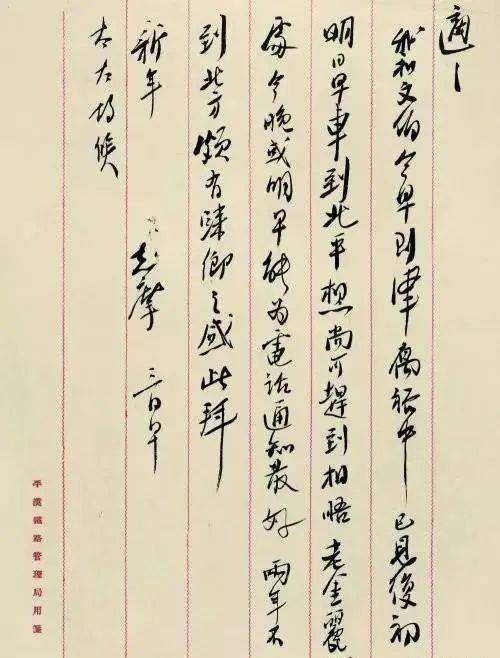 適之
我和文伯今早到津寓裕中已見復初
明日早車到北平想尚可趕到相晤老金麗
處今晚或明早能為電話通知最好 兩年不
到北方頗有歸鄉之感此拜
新年 志摩 三日早
太太均候
平漢鐵路管理局用箋